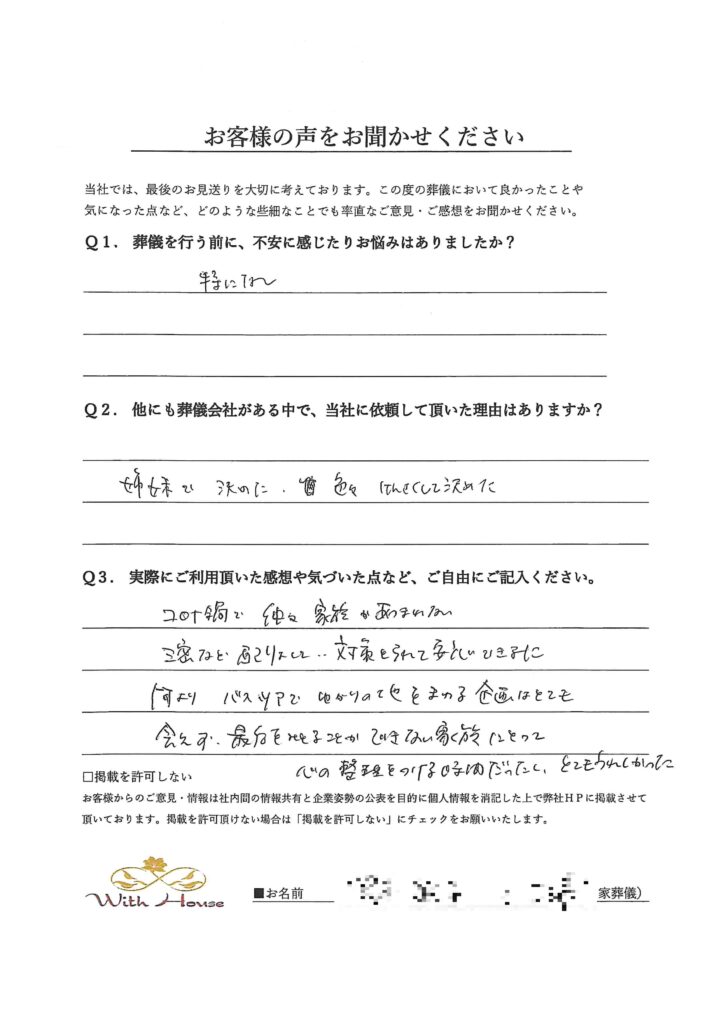 お客様の声をお聞かせください
当社では、最後のお見送りを大切に考えております。この度の葬儀において良かったことや
気になった点など、どのような些細なことでも率直なご意見・ご感想をお聞かせください。
Q1. 葬儀を行う前に、不安に感じたりお悩みはありましたか？
特になし
Q2. 他にも葬儀会社がある中で、当社に依頼して頂いた理由はありますか？
姉妹で 決めた. 色々 けんさくして決めた
Q3. 実際にご利用頂いた感想や気づいた点など、ご自由にご記入ください。
コロナ禍で 家族が あつまれない
三密など 対策をとられて 安心できました
何より バスツアーで ゆかりの地をまわる 企画はとても
会えず、最后をみることが できない家族にとって
心の 整理をつける時間だったし、とてもうれしかった
□掲載を許可しない
お客様からのご意見・情報は社内間の情報共有と企業姿勢の公表を目的に個人情報を消記した上で弊社HPに掲載させて
頂いております。掲載を許可頂けない場合は「掲載を許可しない」にチェックをお願いいたします。
With House
■お名前 家葬儀）